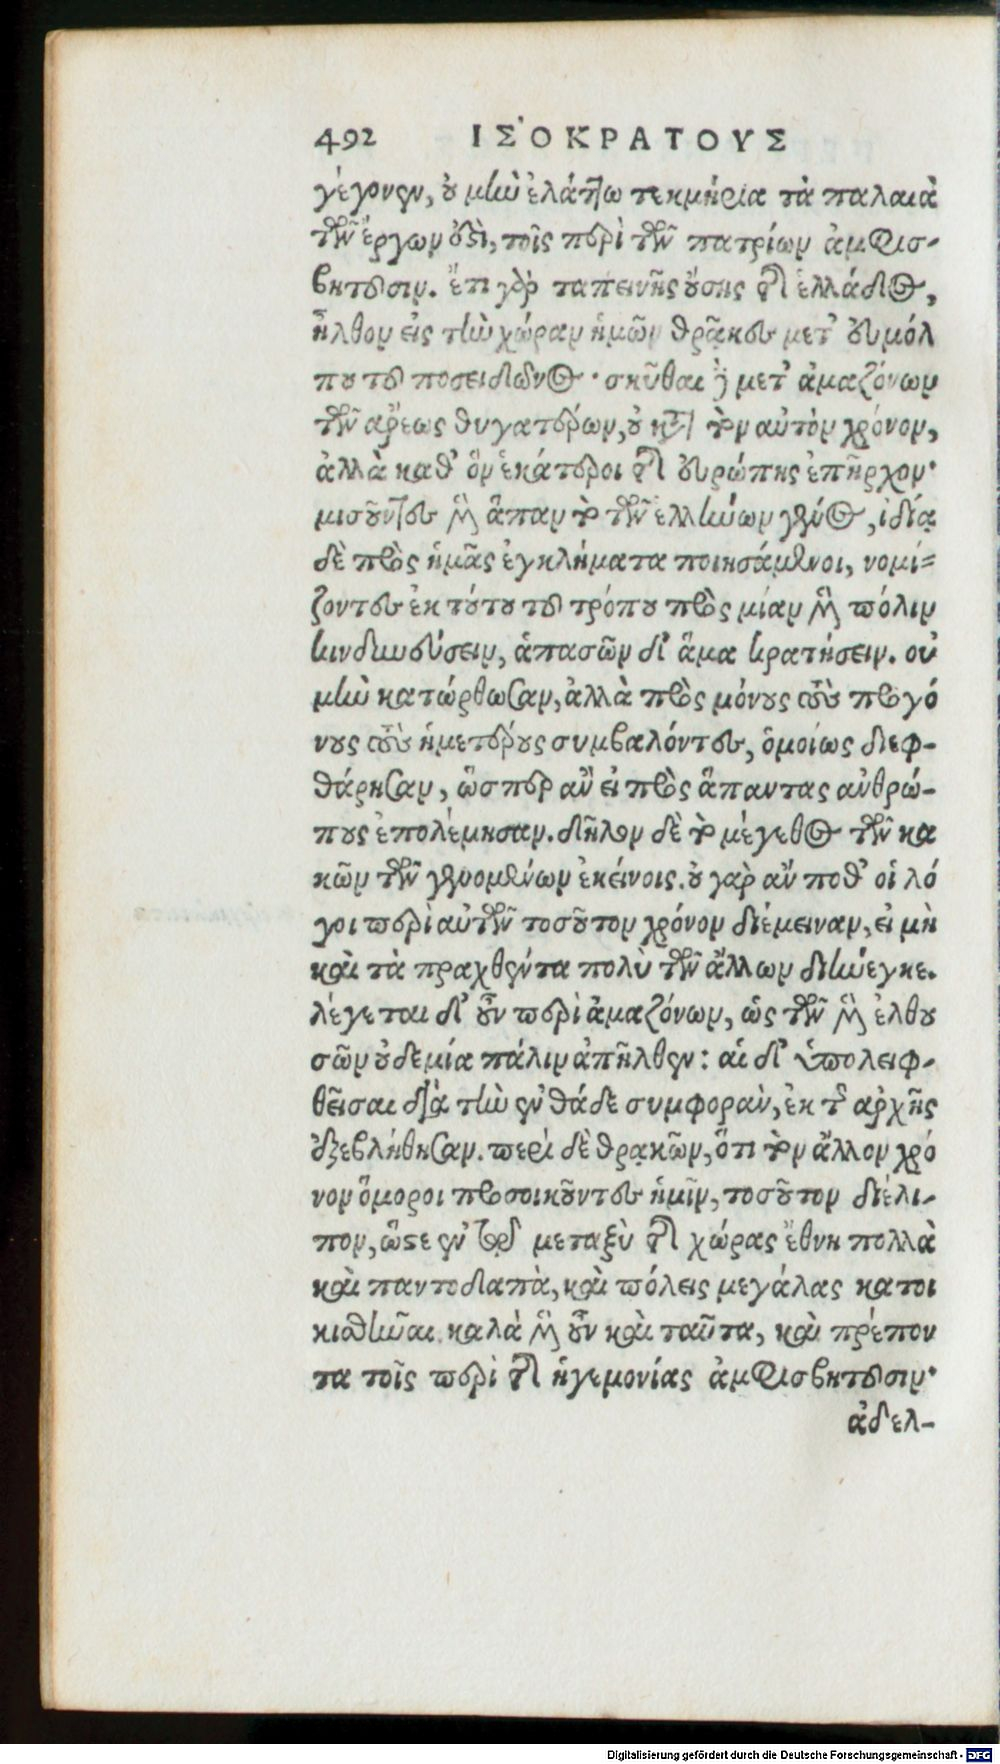 492 ΙΣΟΚΡΑΤΟΥΣ
γέγονεν, οὐ μὴν ἐλάττω τεκμήρια τὰ παλαιὰ
τῶν ἔργων ἐστὶ, τοῖς περὶ τῶν πατρίων ἀμφισ-
βητοῦσιν. ἔτι γὰρ ταπεινῆς οὔσης τῆς ἑλλάδος,
ἦλθον εἰς τὴν χώραν ἡμῶν θρᾷκες μετ' εὐμόλ
που τοῦ ποσειδῶνος· σκύθαι δὲ μετ' ἀμαζόνων
τῶν ἄρεως θυγατέρων, οὐ κατὰ τὸν αὐτὸν χρόνον,
ἀλλὰ καθ' ὃν ἑκάτεροι τῆς εὐρώπης ἐπῆρχον·
μισοῦντες μὲν ἅπαν τὸ τῶν ἑλλήνων γένος, ἰδίᾳ
δὲ πρὸς ἡμᾶς ἐγκλήματα ποιησάμενοι, νομί-
ζοντες ἐκ τούτου τοῦ τρόπου πρὸς μίαν μὲν πόλιν
κινδυνεύσειν, ἁπασῶν δ' ἅμα κρατήσειν. οὐ
μὴν κατώρθωσαν, ἀλλὰ πρὸς μόνους τοὺς προγό
νους τοὺς ἡμετέρους συμβαλόντες, ὁμοίως διεφ-
θάρησαν, ὥσπερ ἂν εἰ πρὸς ἅπαντας ἀνθρώ-
πους ἐπολέμησαν. δῆλον δὲ τὸ μέγεθος τῶν κα
κῶν τῶν γενομένων ἐκείνοις. οὐ γὰρ ἄν ποθ' οἱ λό
γοι περὶ αὐτῶν τοσοῦτον χρόνον διέμειναν, εἰ μὴ
καὶ τὰ πραχθέντα πολὺ τῶν ἄλλων διήνεγκε.
λέγεται δ' οὖν περὶ ἀμαζόνων, ὡς τῶν μὲν ἐλθου
σῶν οὐδεμία πάλιν ἀπῆλθεν: αἱ δ' ὑπολειφ-
θεῖσαι διὰ τὴν ἐνθάδε συμφορὰν, ἐκ τῆς ἀρχῆς
ἐξεβλήθησαν. περὶ δὲ θρᾳκῶν, ὅτι τὸν ἄλλον χρό
νον ὅμοροι προσοικοῦντες ἡμῖν, τοσοῦτον διέλι-
πον, ὥστε ἐν τῷ μεταξὺ τῆς χώρας ἔθνη πολλὰ
καὶ παντοδαπὰ, καὶ πόλεις μεγάλας κατοι
κισθῆναι. καλὰ μὲν οὖν καὶ ταῦτα, καὶ πρέπον
τα τοῖς περὶ τῆς ἡγεμονίας ἀμφισβητοῦσιν·
ἀδελ-
Digitalisierung gefördert durch die Deutsche Forschungsgemeinschaft - DFG